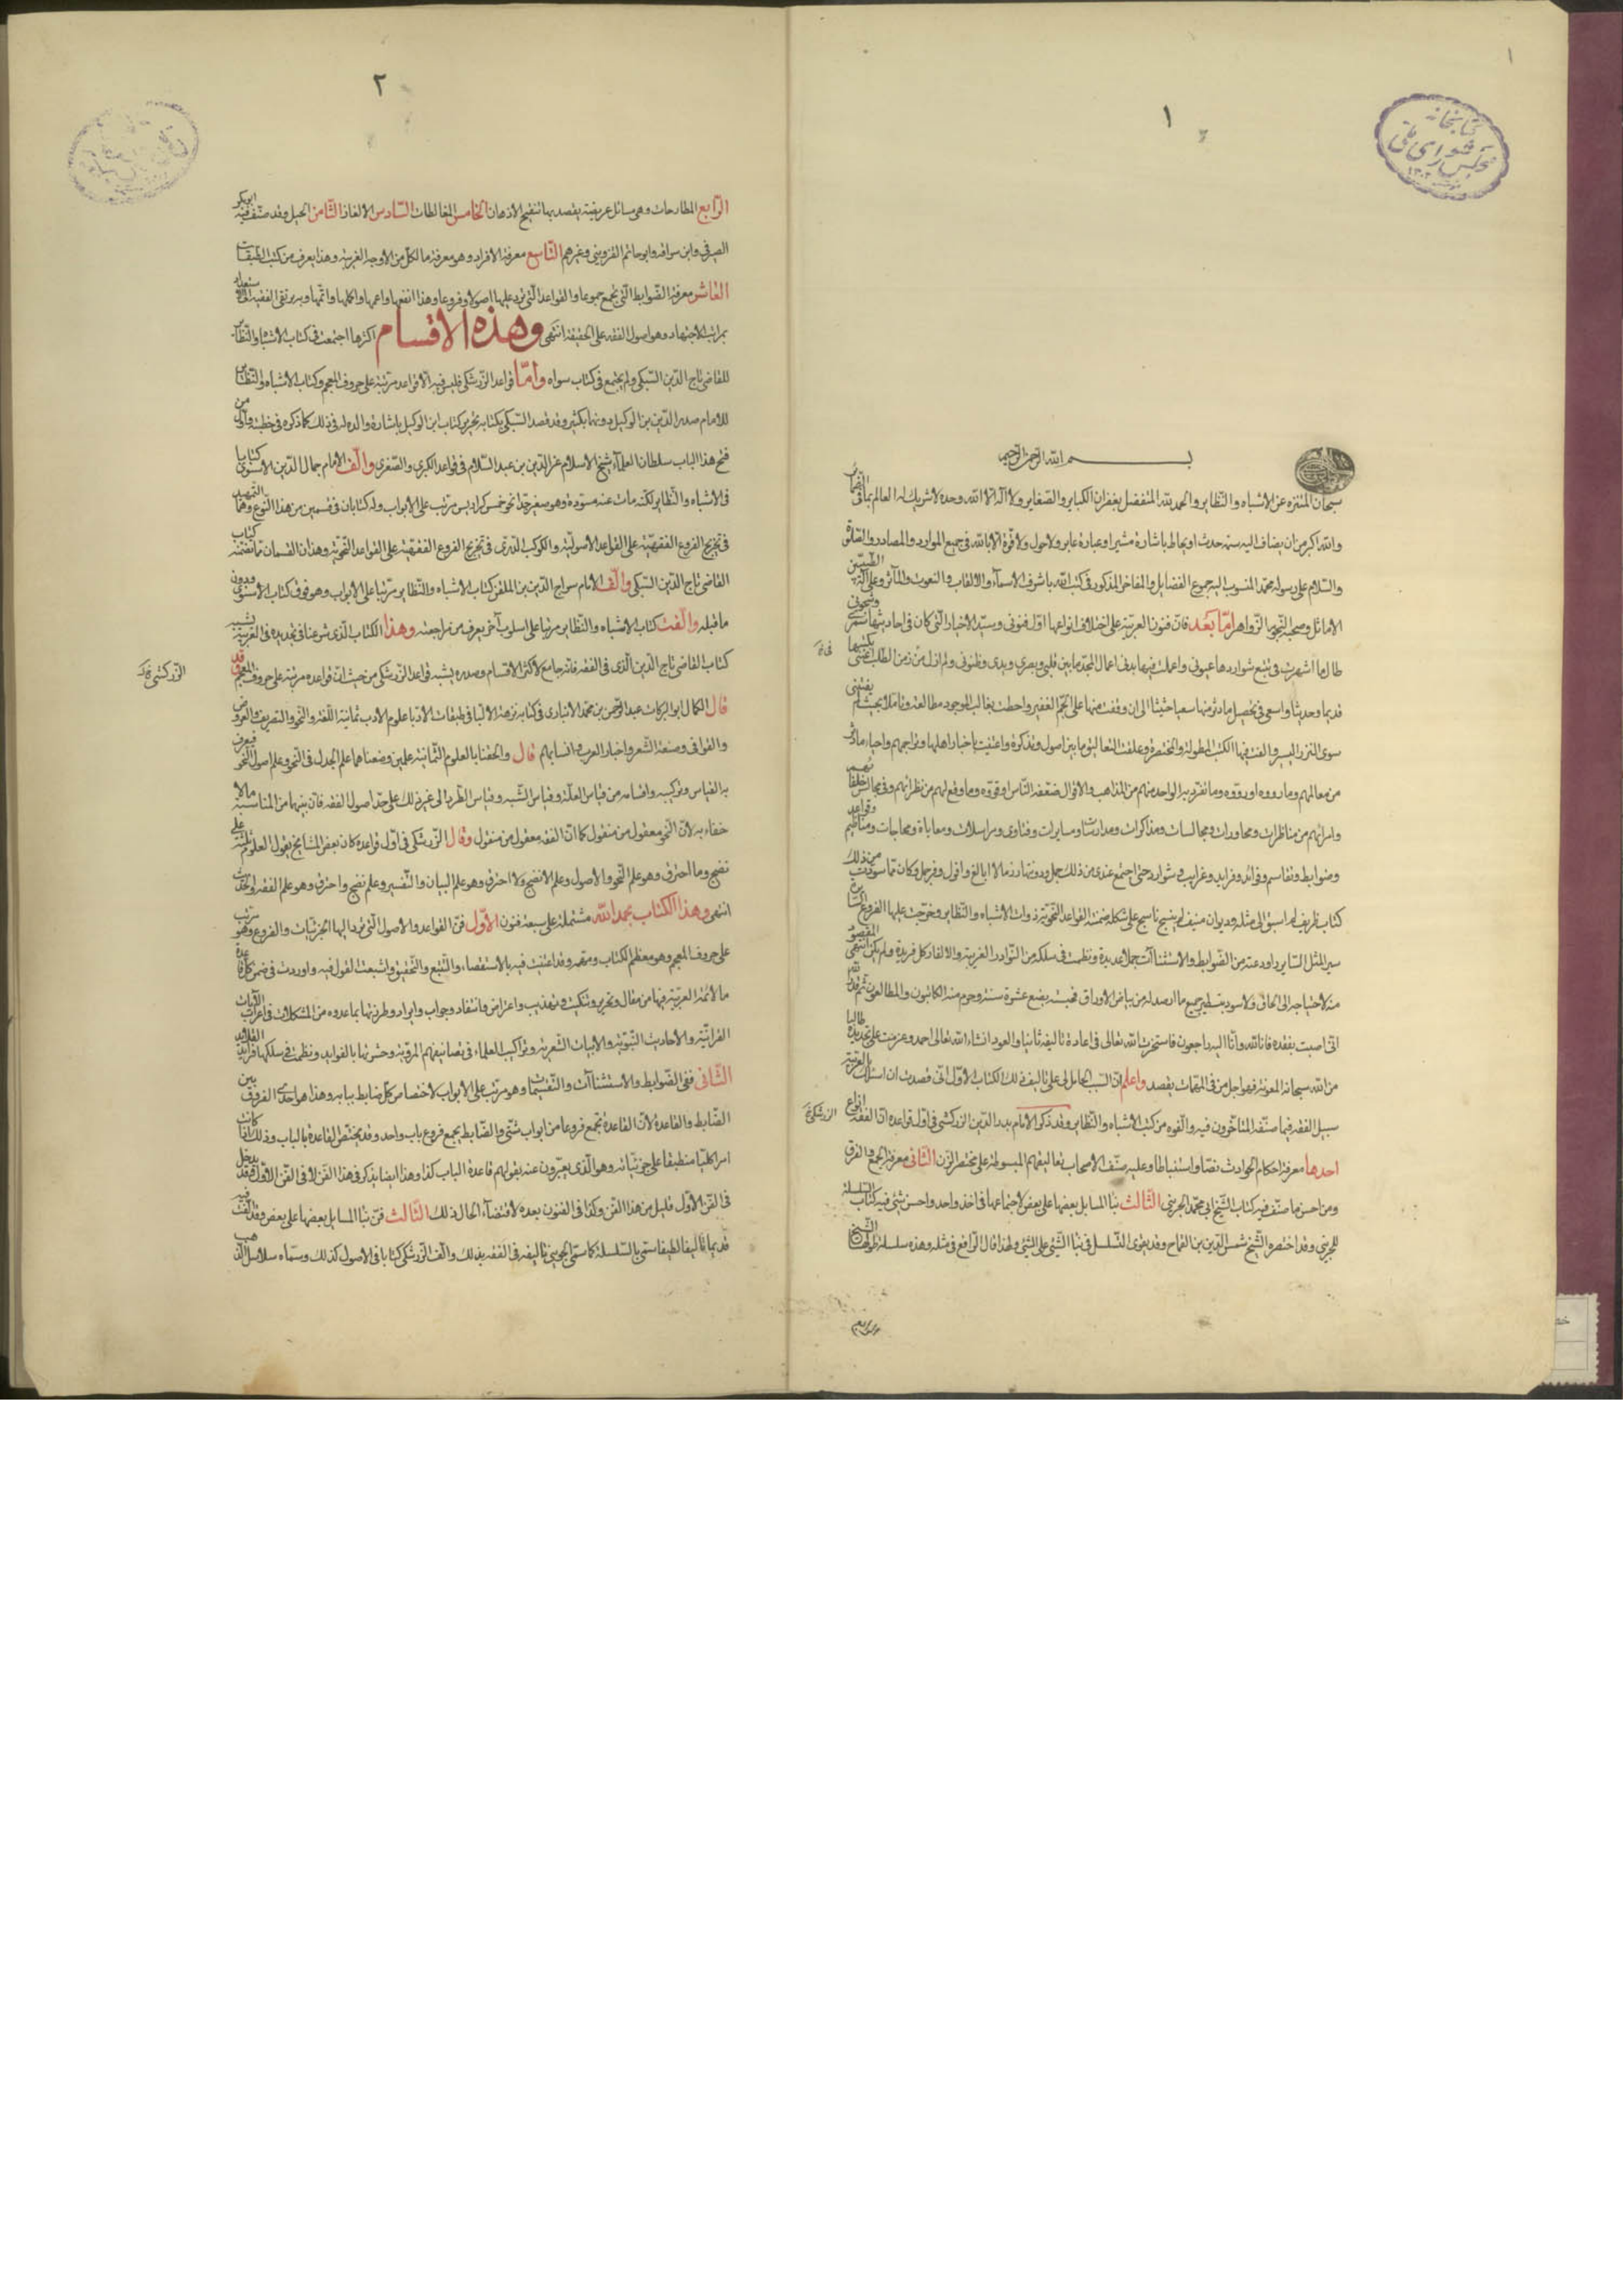 ١
كتابخانه
مجلس شورای ملی
١
بسم الله الرحمن الرحيم
سبحان المنزه عن الاشباه والنظاير والحمد لله المتفضل بغفران الكباير والصغاير ولا اله الا الله وحده لا شريك له العالم بما في الضمائر
والله اكبر من ان يضاف اليه سنة حدث او يحاط باشارة مشير او عبارة عابر ولا حول ولا قوة الا بالله في جميع الموارد والمصادر والصلوة
والسلام على رسوله محمد المنسوب اليه جموع الفضايل والمفاخر المذكور في كتب الله باشرف الاسماء والالقاب والنعوت والمآثر وعلى آله الطيبين
الاماثل وصحبه النجوم الزواهر اما بعد فان فنون العربية على اختلاف انواعها اول فنوني وسيد الاخبار التي كان في احاديثها سمري وشجوني
طالما اشهرت في تتبع شواردها عيوني واعملت فيها بدني اعمال المجد ما بين قلبي وبصري ويدي وظنوني ولم ازل من زمن الطلب اعتني بكتبها
قديما وحديثا واسعى في تحصيل ما دثر منها سعيا حثيثا الى ان وقفت منها على الجم الغفير واحطت بغالب الموجود مطالعة وتاملا بحيث لم يفتني
سوى النزر اليسير والفت فيها الكتب المطولة والمختصرة وعلقت التعاليق ما بين اصول وتذكرة واعتنيت باخبار اهلها وتراجمهم واحياء ما دثر
من معالمهم وما رووه او رووه وما تفرد به الواحد منهم من المذاهب والاقوال ضعفه الناس او قووه وما وقع لهم من نظرائهم وفي مجالس خلفائهم
وامرائهم من مناظرات ومحاورات ومجالسات ومذاكرات ومدارسات ومسايرات وفتاوى ومراسلات ومعاياة ومحاجات وقواعد ومناظيم
وضوابط وتقاسيم وفوائد وفرايد وغرايب وشوارد حتى اجتمع عندي من ذلك جمل ودونتها رزما لا ابالغ واقول وقر جمل وكان مما سودت من ذلك
كتاب ظريف لم اسبق الى مثله وديوان منيف لم ينسج ناسج على شكله ضمنته القواعد النحوية ذوات الاشباه والنظاير وخرجت عليها الفروع السائرة
سير المثل الساير واودعته من الضوابط والاستثناآت جملا عديدة ونظمت في سلكه من النوادر الغريبة والالغاز كل فريدة ولم يكن انتهى المقصود
منه لاحتياجه الى الحاق ولا سود بتسطير جميع ما ارصد له من بياض الاوراق فحبسته بضع عشرة سنة وحرم منه الكاتبون والمطالعون ثم قدر الله
اني اصبت بفقده فانا لله وانا اليه راجعون فاستخرت الله تعالى في اعادة تاليفه ثانيا والعود انشاء الله تعالى احمد وعزمت على تجديده طالبا
من الله سبحانه المعونة فهو اجل من في المهمات يقصد واعلم ان السبب الحامل لي على تاليف ذلك الكتاب الاول اني قصدت ان اسلك بالعربية
سبيل الفقه فيما صنفه المتاخرون فيه والفوه من كتب الاشباه والنظاير وقد ذكر الامام بدر الدين الزركشي في اول قواعده ان الفقه انواع
الزركشي
احدها معرفة احكام الحوادث نصا واستنباطا وعليه صنف الاصحاب تعاليقهم المبسوطة على مختصر المزني الثاني معرفة الجمع والفرق
ومن احسن ما صنف فيه كتاب الشيخ ابي محمد الجويني الثالث بنا المسايل بعضها على بعض لاجتماعها في ماخذ واحد واحسن شئي فيه كتاب السلسلة
للجويني وقد اختصره الشيخ شمس الدين بن القماح وقد يقوى التسلسل في بنا الشئي على الشئي ولهذا قال الرافعي في مثله وهذه سلسلة طولها الشيخ
٢
الرابع المطارحات وهي مسائل عويصة يقصد بها تنقيح الاذهان الخامس المغالطات السادس الالغاز الثامن الحيل وقد صنف فيه ابو بكر
الصيرفي وابن سراقة وابو حاتم القزويني وغيرهم التاسع معرفة الافراد وهو معرفة ما لكل من الاوجه الغريبة وهذا يعرف من كتب الطبقات
العاشر معرفة الضوابط التي تجمع جموعا والقواعد التي ترد عليها اصولا وفروعا وهذا انفعها واعمها واكملها واتمها وبه يرتقي الفقيه الى الاستعداد
بمراتب الاجتهاد وهو اصول الفقه على الحقيقة انتهى وهذه الاقسام اكثرها اجتمعت في كتاب الاشباه والنظاير
للقاضي تاج الدين السبكي ولم يجتمع في كتاب سواه واما قواعد الزركشي فليس فيها الا قواعد مرتبة على حروف المعجم وكتاب الاشباه والنظاير
للامام صدر الدين بن الوكيل دونهما بكثير وقد قصد السبكي بكتابه تحرير كتاب ابن الوكيل باشارة والده له في ذلك كما ذكره في خطبته واول من
فتح هذا الباب سلطان العلماء شيخ الاسلام عز الدين بن عبد السلام في قواعده الكبرى والصغرى والف الامام جمال الدين الاسنوي كتابا
في الاشباه والنظاير لكنه مات عنه مسودة وهو صغير جدا نحو خمس كراريس مرتب على الابواب وله كتابان في قسمين من هذا النوع وهما التمهيد
في تخريج الفروع الفقهية على القواعد الاصولية والكوكب الدري في تخريج الفروع الفقهية على القواعد النحوية وهذان القسمان مما تضمنه كتاب
القاضي تاج الدين السبكي والف الامام سراج الدين بن الملقن كتاب الاشباه والنظاير مرتبا على الابواب وهو فوق كتاب الاسنوي ودون
ما قبله والفت كتاب الاشباه والنظاير مرتبا على اسلوب آخر يعرف من مراجعته وهذا الكتاب الذي شرعنا في تجديده في العربية يشبه
كتاب القاضي تاج الدين الذي في الفقه فانه جامع لاكثر الاقسام وصدره يشبه قواعد الزركشي من حيث ان قواعده مرتبة على حروف المعجم وقد
الزركشي
قال الكمال ابو البركات عبد الرحمن بن محمد الانباري في كتابه نزهة الالبا في طبقات الادبا علوم الادب ثمانية اللغة والنحو والتصريف والعروض
والقوافي وصنعة الشعر واخبار العرب وانسابهم قال والحقنا بالعلوم الثمانية علمين وضعناهما علم الجدل في النحو وعلم اصول النحو فيعرف
به القياس وتركيبه واقسامه من قياس العلة وقياس الشبه وقياس الطرد الى غير ذلك على حد اصول الفقه فان بينهما من المناسبة ما لا
خفاء به لان النحو معقول من منقول كما ان الفقه معقول من منقول وقال الزركشي في اول قواعده كان بعض المشايخ يقول العلوم ثلثة علم
نضج وما احترق وهو علم النحو والاصول وعلم لا نضج ولا احترق وهو علم البيان والتفسير وعلم نضج واحترق وهو علم الفقه والحديث
انتهى وهذا الكتاب بحمد الله مشتملة على سبعة فنون الاول فن القواعد والاصول التي ترد اليها الجزئيات والفروع وهو مرتب
على حروف المعجم وهو معظم الكتاب ومهمه وقد اعتنيت فيه بالاستقصاء والتتبع والتحقيق واشبعت القول فيه واوردت في ضمن كل قاعدة
ما لائمة العربية فيها من مقال وتحرير وتنكيت وتهذيب واعتراض وانتقاد وجواب وايراد وطرزتها بما عدوه من المشكلات في اعراب الآيات
القرانية والاحاديث النبوية والابيات الشعرية وتراكيب العلماء في تصانيفهم المروية وحشوتها بالفوايد ونظمت في سلكها فرايد القلائد
الثاني فن الضوابط والاستثناآت والتقسيمات وهو مرتب على الابواب لاختصاص كل ضابط ببابه وهذا هو احدى الفروق بين
الضابط والقاعدة لان القاعدة تجمع فروعا من ابواب شتى والضابط يجمع فروع باب واحد وقد يختص القاعدة بالباب وذلك اذا كانت
امرا كليا منطبقا على جزئياته وهو الذي يعبرون عنه بقولهم قاعدة الباب كذا وهذا ايضا يذكر في هذا الفن لا في الفن الاول وقد يدخل
في الفن الاول قليل من هذا الفن وكذا في الفنون بعده لاقتضاء الحال ذلك الثالث فن بنا المسايل بعضها على بعض وقد الفت فيه
قديما تاليفا لطيفا سمي بالسلسلة كما سمى الجويني تاليفه في الفقه بذلك والف الزركشي كتابا في الاصول كذلك وسماه سلاسل الذهب